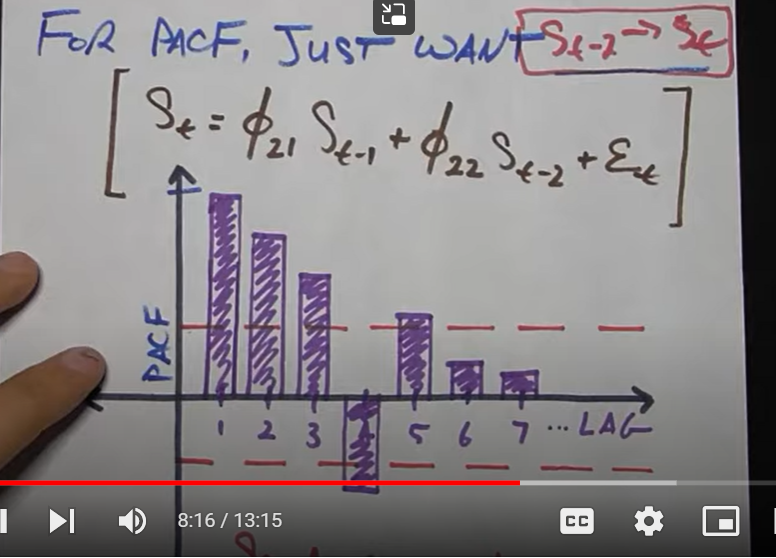 FOR PACF, JUST WANT S_{t-2} → S_t
[ S_t = ϕ_{21} S_{t-1} + ϕ_{22} S_{t-2} + ε_t ]
PACF
1 2 3 4 5 6 7 ... LAG
8:16 / 13:15
CC